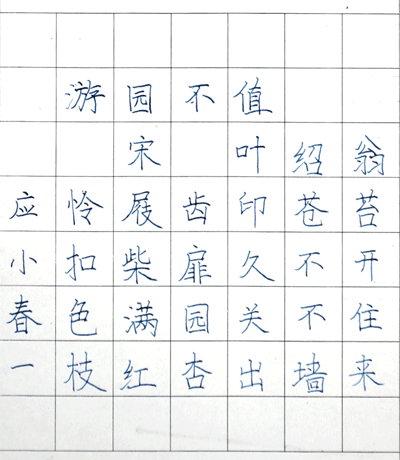 游园不值
宋 叶绍翁
应怜屐齿印苍苔
小扣柴扉久不开
春色满园关不住
一枝红杏出墙来